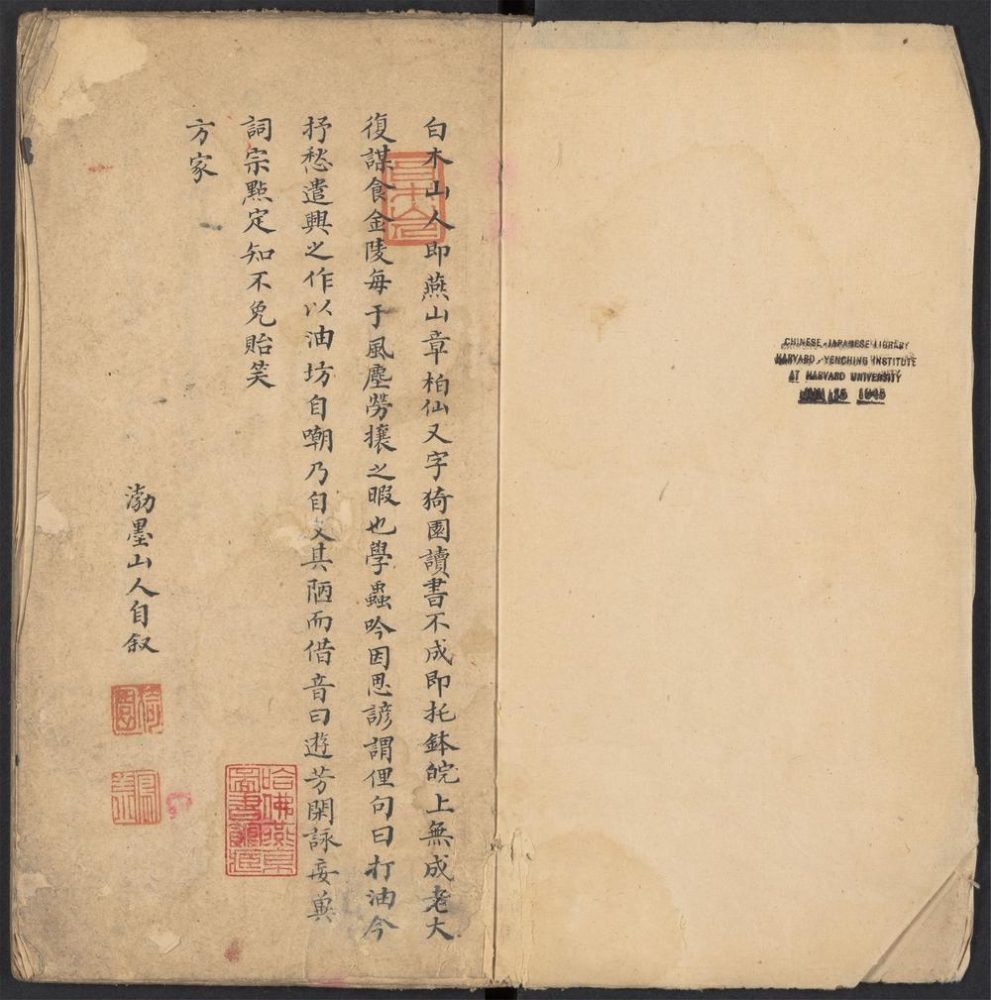 白木山人即燕山章柏仙又字猗園讀書不成即托鉢皖上無成老大
復謀食金陵每于風塵勞攘之暇也學蟲吟因思諺謂俚句曰打油今
抒愁遣興之作以油坊自嘲乃自文其陋而借音曰遊芳閑詠妄冀
詞宗點定知不免貽笑
方家
渤墨山人自叙
哈佛燕京
圖書館藏
CHINESE-JAPANESE LIBRARY
HARVARD-YENCHING INSTITUTE
AT HARVARD UNIVERSITY
1945